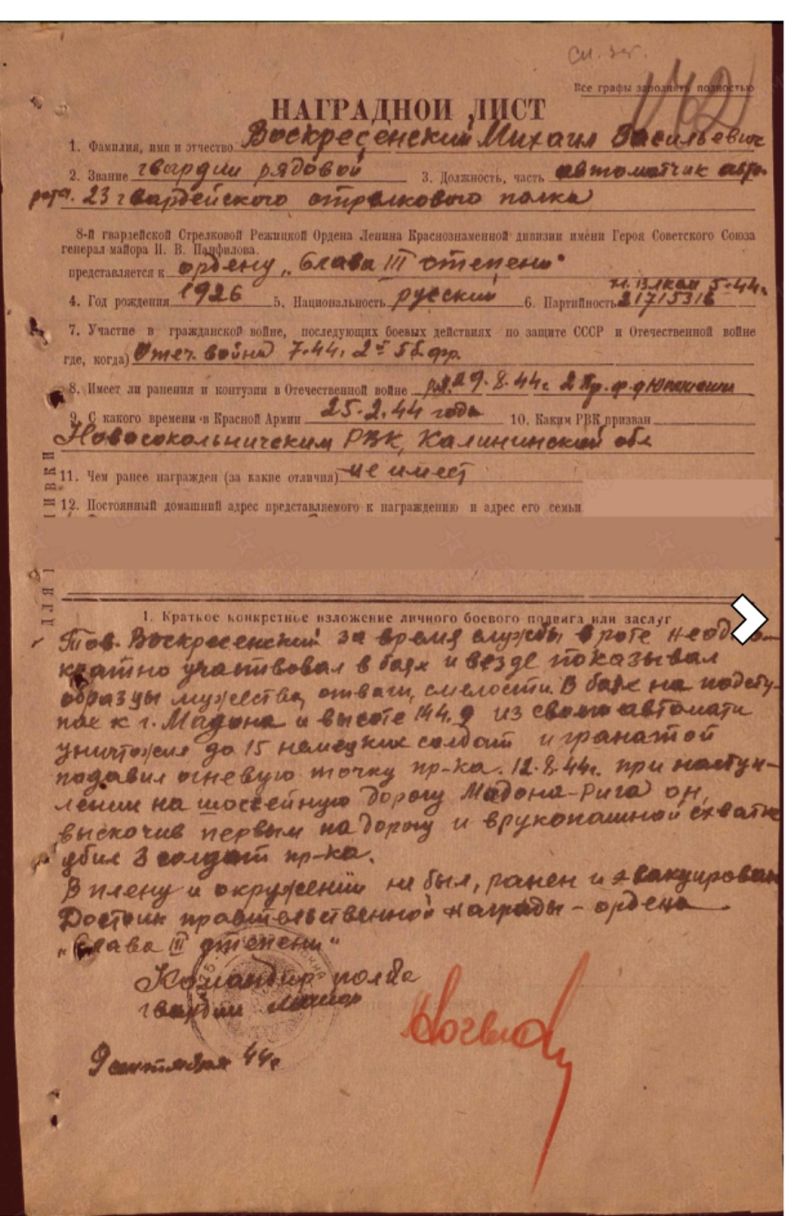 Все графы заполнять полностью
НАГРАДНОЙ ЛИСТ
1. Фамилия, имя и отчество Воскресенский Михаил Васильевич
2. Звание гвардии рядовой 3. Должность, часть автоматчик авто-
рота. 23 гвардейского стрелкового полка
8-й гвардейской Стрелковой Режицкой Ордена Ленина Краснознаменной дивизии имени Героя Советского Союза
генерал майора И. В. Панфилова.
представляется к ордену „Слава III степени"
4. Год рождения 1926 5. Национальность русский 6. Партийность чл. ВЛКСМ 5.44г.
21715316
7. Участие в гражданской войне, последующих боевых действиях по защите СССР и Отечественной войне
где, когда) Отеч. война 7.44г. 2й Пб. фр.
8. Имеет ли ранения и контузии в Отечественной войне 29.8.44г. 2 Пр. ф.
9. С какого времени в Красной Армии 25.2.44 года 10. Каким РВК призван
Новосокольническим РВК, Калининской обл
11. Чем ранее награжден (за какие отличия) не имеет
12. Постоянный домашний адрес представляемого к награждению и адрес его семьи
ДЛЯ
ИВКИ
1. Краткое конкретное изложение личного боевого подвига или заслуг
Тов. Воскресенский за время службы в роте неодно-
кратно участвовал в боях и везде показывал
образцы мужества, отваги, смелости. В боях на подсту-
пах к г. Мадона и высоте 144.9 из своего автомата
уничтожил до 15 немецких солдат и гранатой
подавил огневую точку пр-ка. 12.8.44г. при наступ-
лении на шоссейную дорогу Мадона-Рига он,
выскочив первым на дорогу и врукопашной схватке
убил 3 солдат пр-ка.
В плену и окружении не был, ранен и эвакуирован
Достоин правительственной награды - ордена
„Слава III степени"
Командир полка
гвардии майор
9 сентября 44г